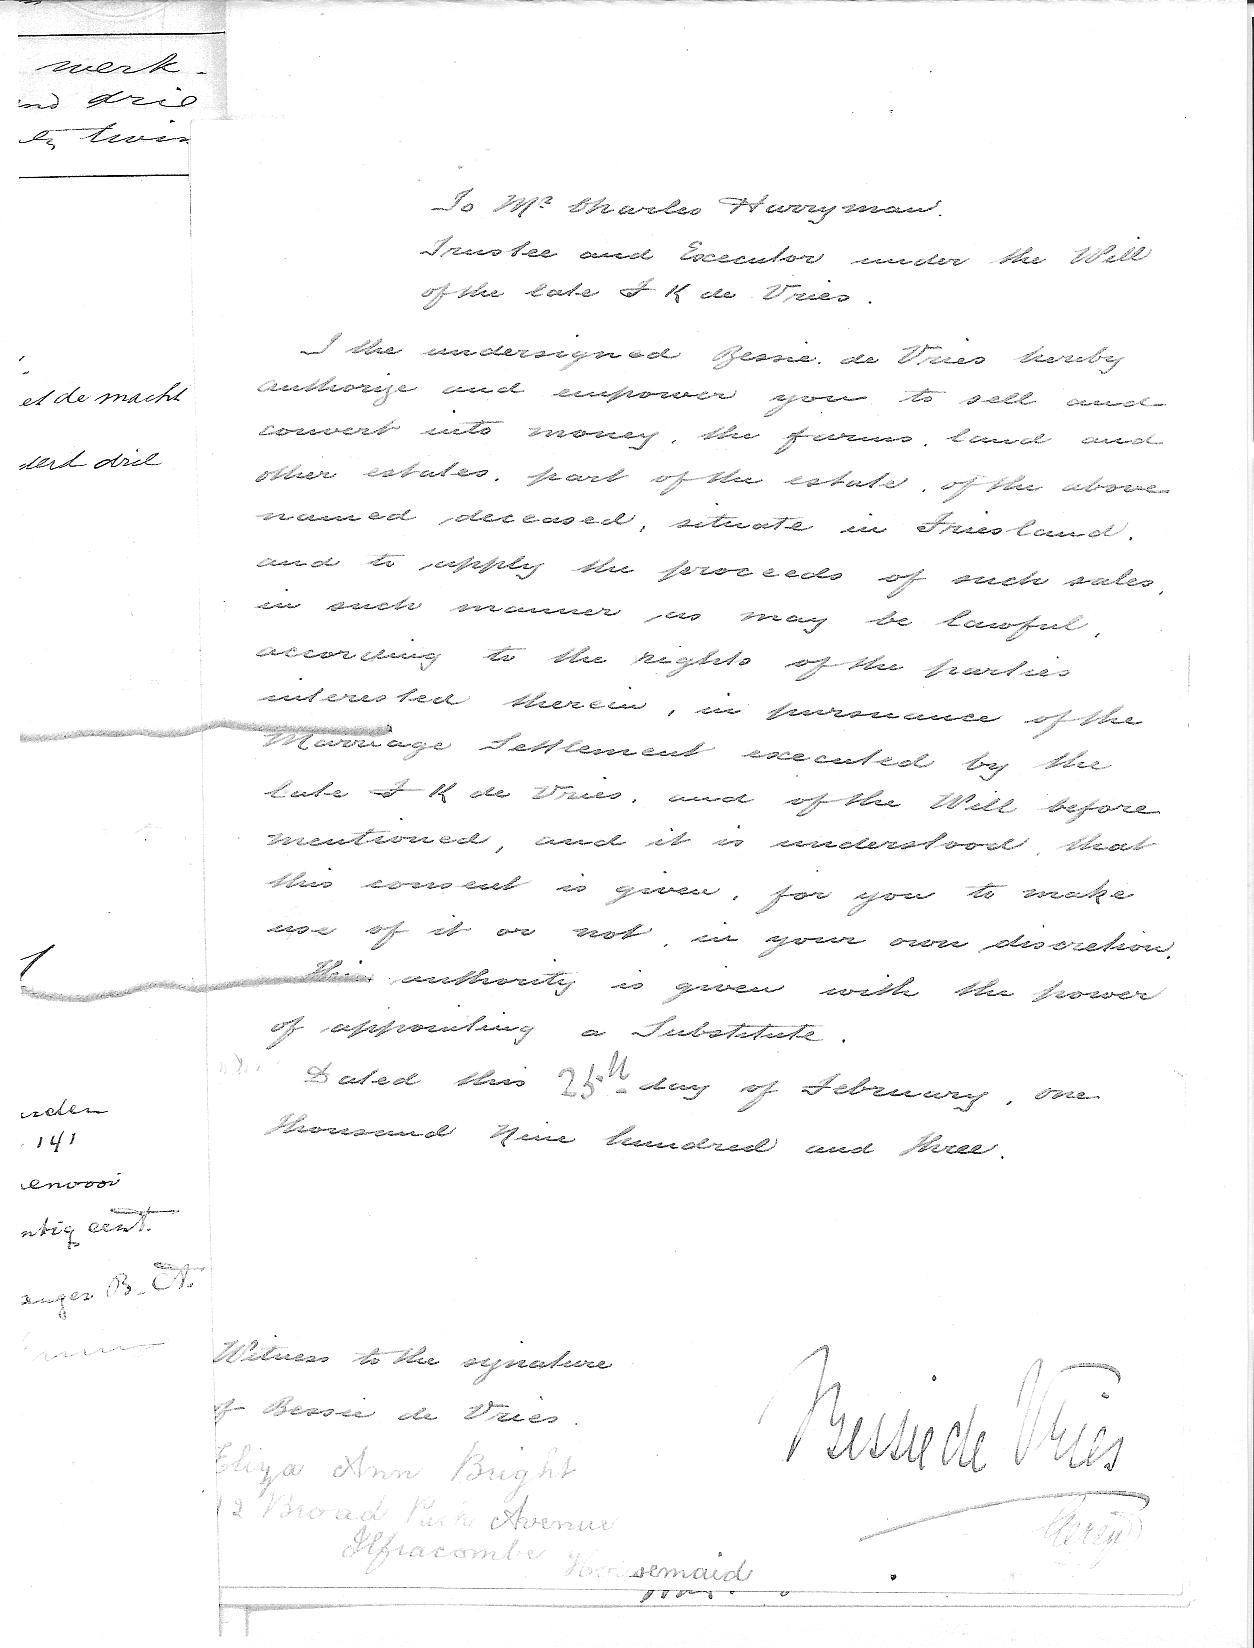 werk-
drie
twin
et de macht
dert drie
141
envooi
ntig cent.
B. A.
To Mr. Charles Harryman.
Trustee and Executor under the Will
of the late J K de Vries.
I the undersigned Bessie. de Vries hereby
authorize and empower you to sell and
convert into money, the farms, land and
other estates, part of the estate, of the above
named deceased, situate in Friesland,
and to apply the proceeds of such sales,
in such manner as may be lawful,
according to the rights of the parties
interested therein, in pursuance of the
Marriage Settlement executed by the
late J K de Vries, and of the Will before
mentioned, and it is understood, that
this consent is given, for you to make
use of it or not, in your own discretion.
This authority is given with the power
of appointing a Substitute.
Dated this 25th day of February, one
thousand Nine hundred and three.
Witness to the signature
of Bessie de Vries.
Eliza Ann Bright
12 Broad Park Avenue
Ilfracombe
Housemaid
Bessie de Vries